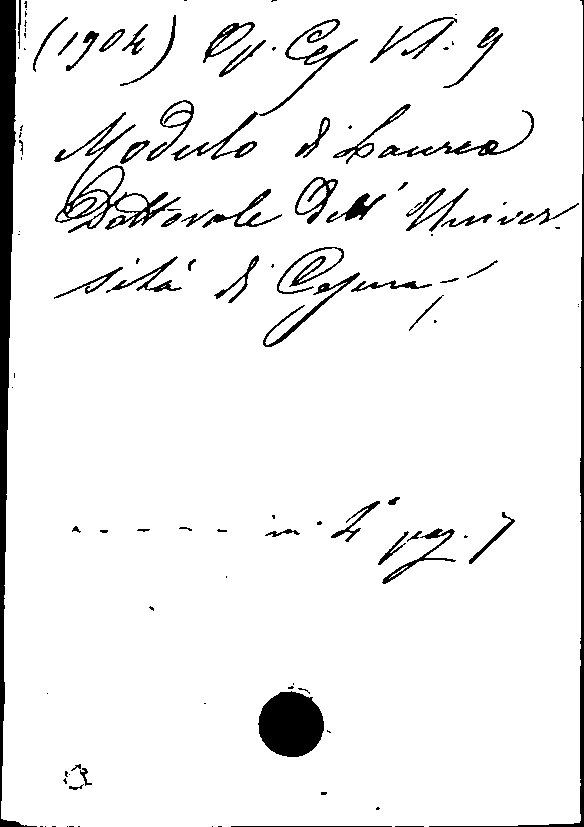 (1904) Op. Ces VI. 9
Modulo di Laurea
Dottorale dell' Univer-
sità di Cesena
- - - - - in 4° pag. 7